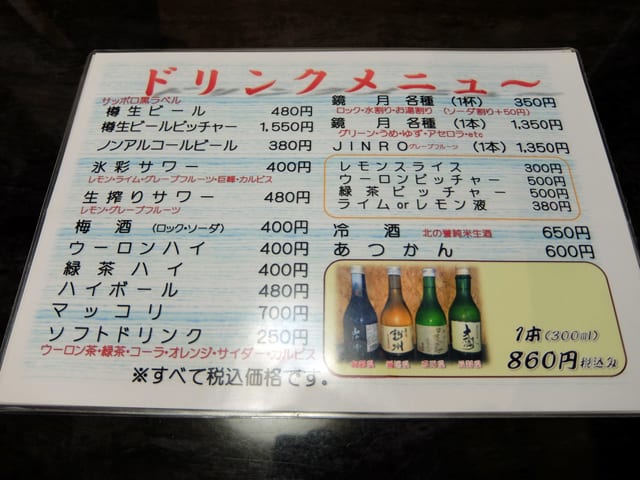 ドリンクメニュ～
サッポロ黒ラベル
樽生ビール 480円
樽生ビールピッチャー 1,550円
ノンアルコールビール 380円
氷彩サワー 400円
レモン・ライム・グレープフルーツ・巨峰・カルピス
生搾りサワー 480円
レモン・グレープフルーツ
梅酒 (ロック・ソーダ) 400円
ウーロンハイ 400円
緑茶ハイ 400円
ハイボール 480円
マッコリ 700円
ソフトドリンク 250円
ウーロン茶・緑茶・コーラ・オレンジ・サイダー・カルピス
※すべて税込価格です。
鏡月各種 (1杯) 350円
ロック・水割り・お湯割り (ソーダ割り+50円)
鏡月各種 (1本) 1,350円
グリーン・うめ・ゆず・アセロラ・etc
JINRO グレープフルーツ (1本) 1,350円
レモンスライス 300円
ウーロンピッチャー 500円
緑茶ピッチャー 500円
ライムorレモン液 380円
冷酒 北の誉純米生酒 650円
あつかん 600円
1本(300ml)
860円税込み